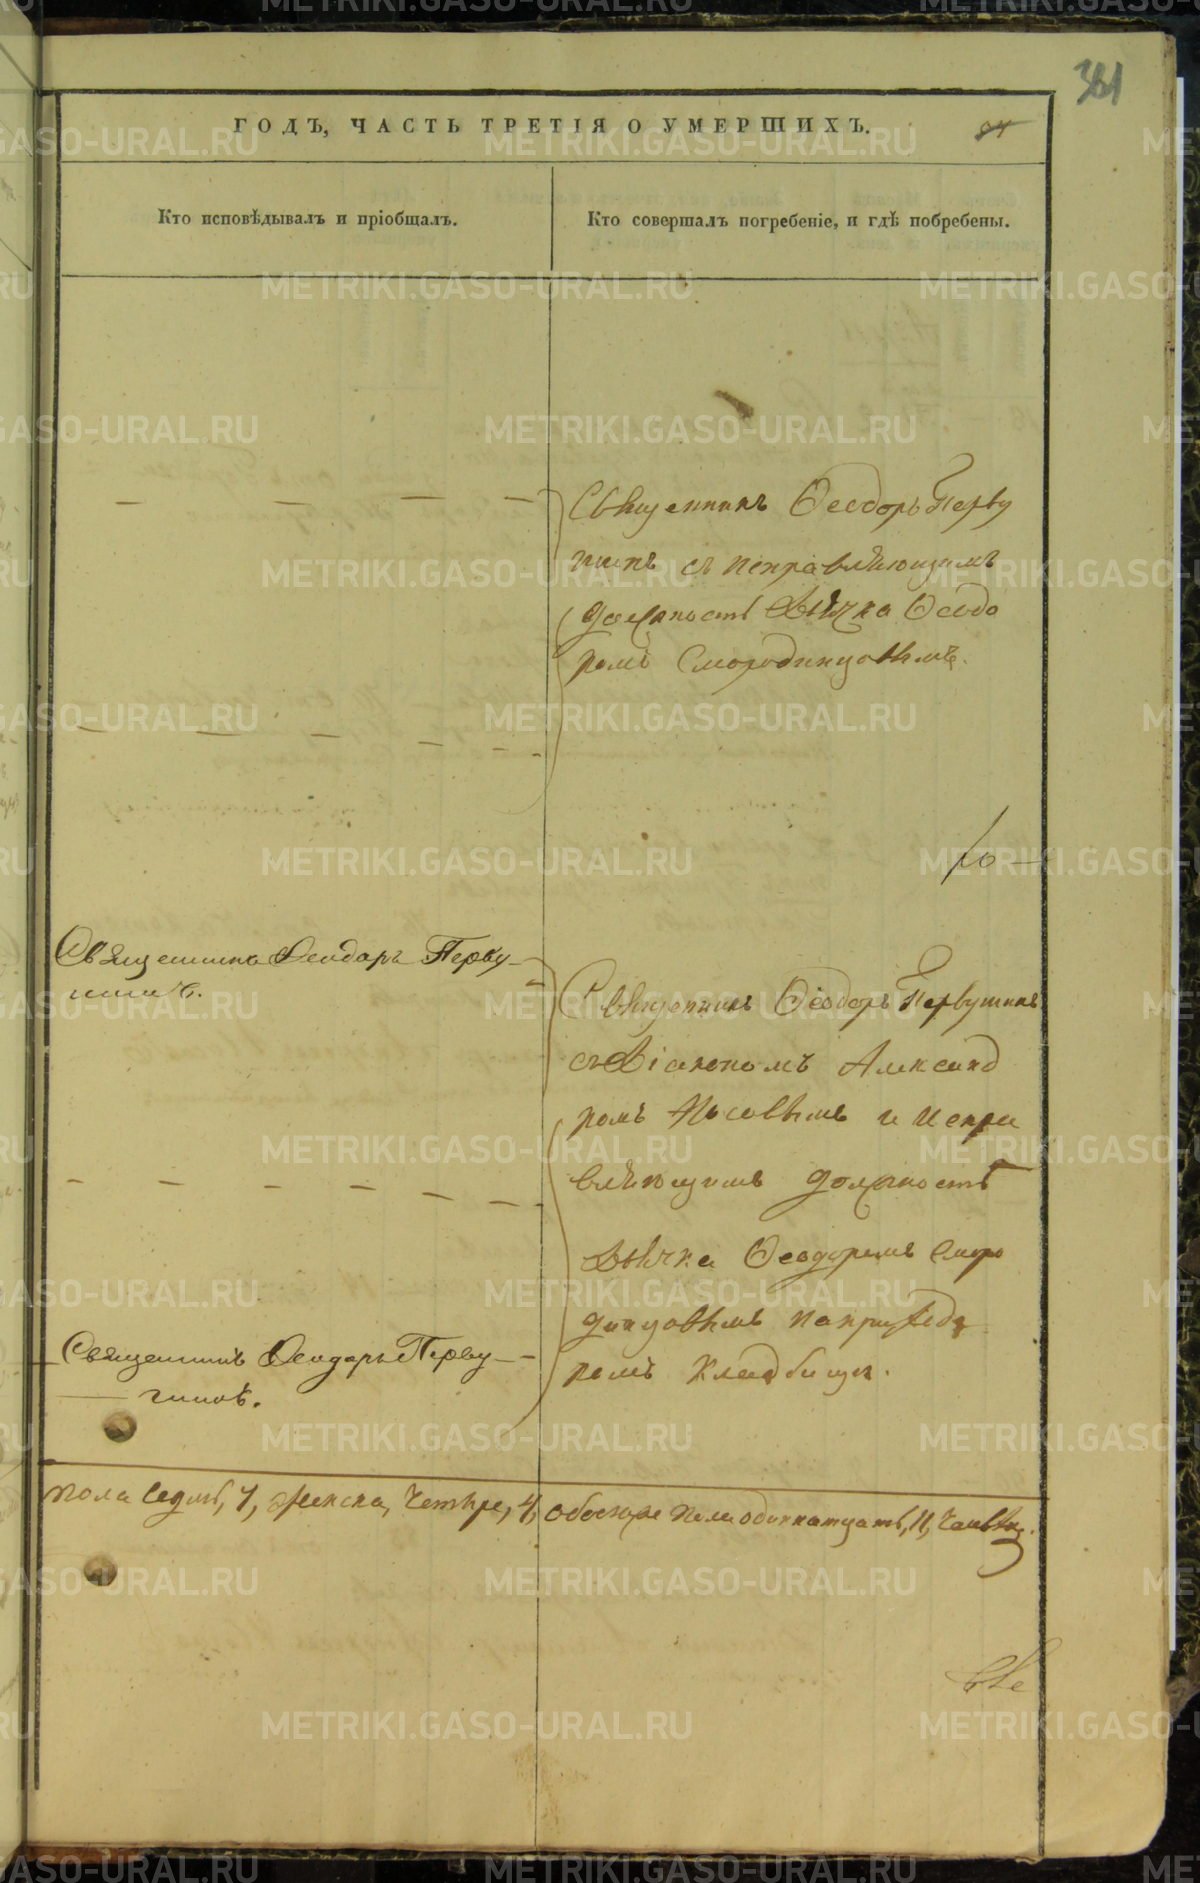 381
ГОДЪ, ЧАСТЬ ТРЕТІЯ О УМЕРШИХЪ.
Кто исповѣдывалъ и пріобщалъ.
Кто совершалъ погребеніе, и гдѣ побребены.
Священникъ Ѳеодоръ Перву
шинъ съ исправляющимъ
должность Дьячка Ѳеодо
ромъ Смородинцовымъ.
Священникъ Ѳеодоръ Перву
шинъ.
Священникъ Ѳеодоръ Первушинъ
съ Діакономъ Александ
ромъ Носовымъ и испра
вляющимъ должность
Дьячка Ѳеодоромъ Сморо
динцовымъ на приход
комъ кладбищѣ.
Священникъ Ѳеодоръ Перву
шинъ.
пола седмь, 7, женска, четыре, 4, обоего же пола одиннатцать, 11, человѣкъ.
METRIKI.GASO-URAL.RU